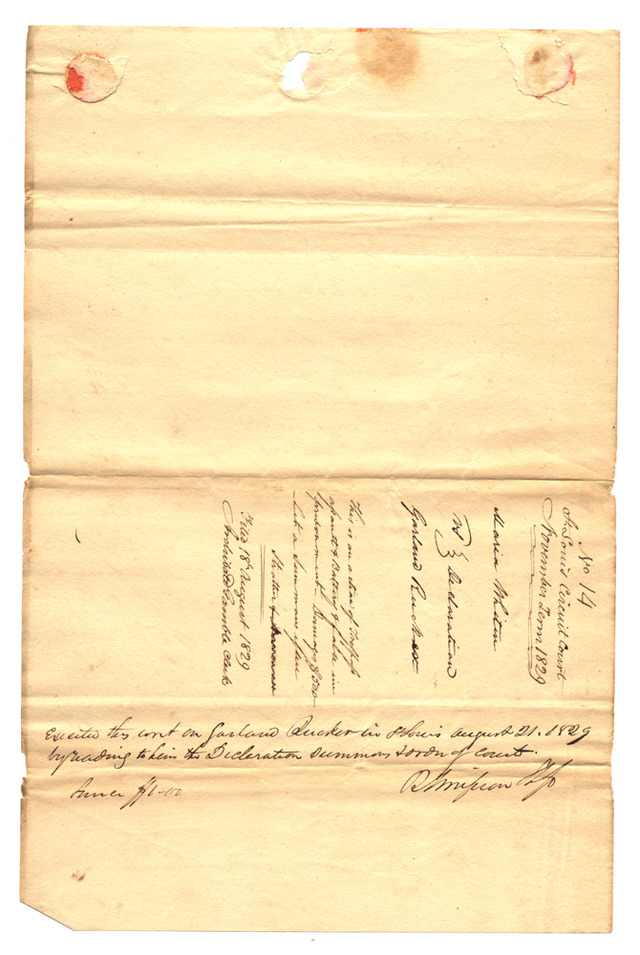 No 14
St Louis Circuit Court
November Term 1829
Maria Whiten
vs } Declaration
Garland Rucker
This is an action of Trespass
assault & Battery & false im
prisonment Damages $500
Let a Summons issue
Filed 18th August 1829
Archibald Gamble Clerk
Executed this writ on Garland Rucker in St Louis august 21. 1829
by reading to him the Declaration summons & order of court.
$1-00
R Simpson Shff